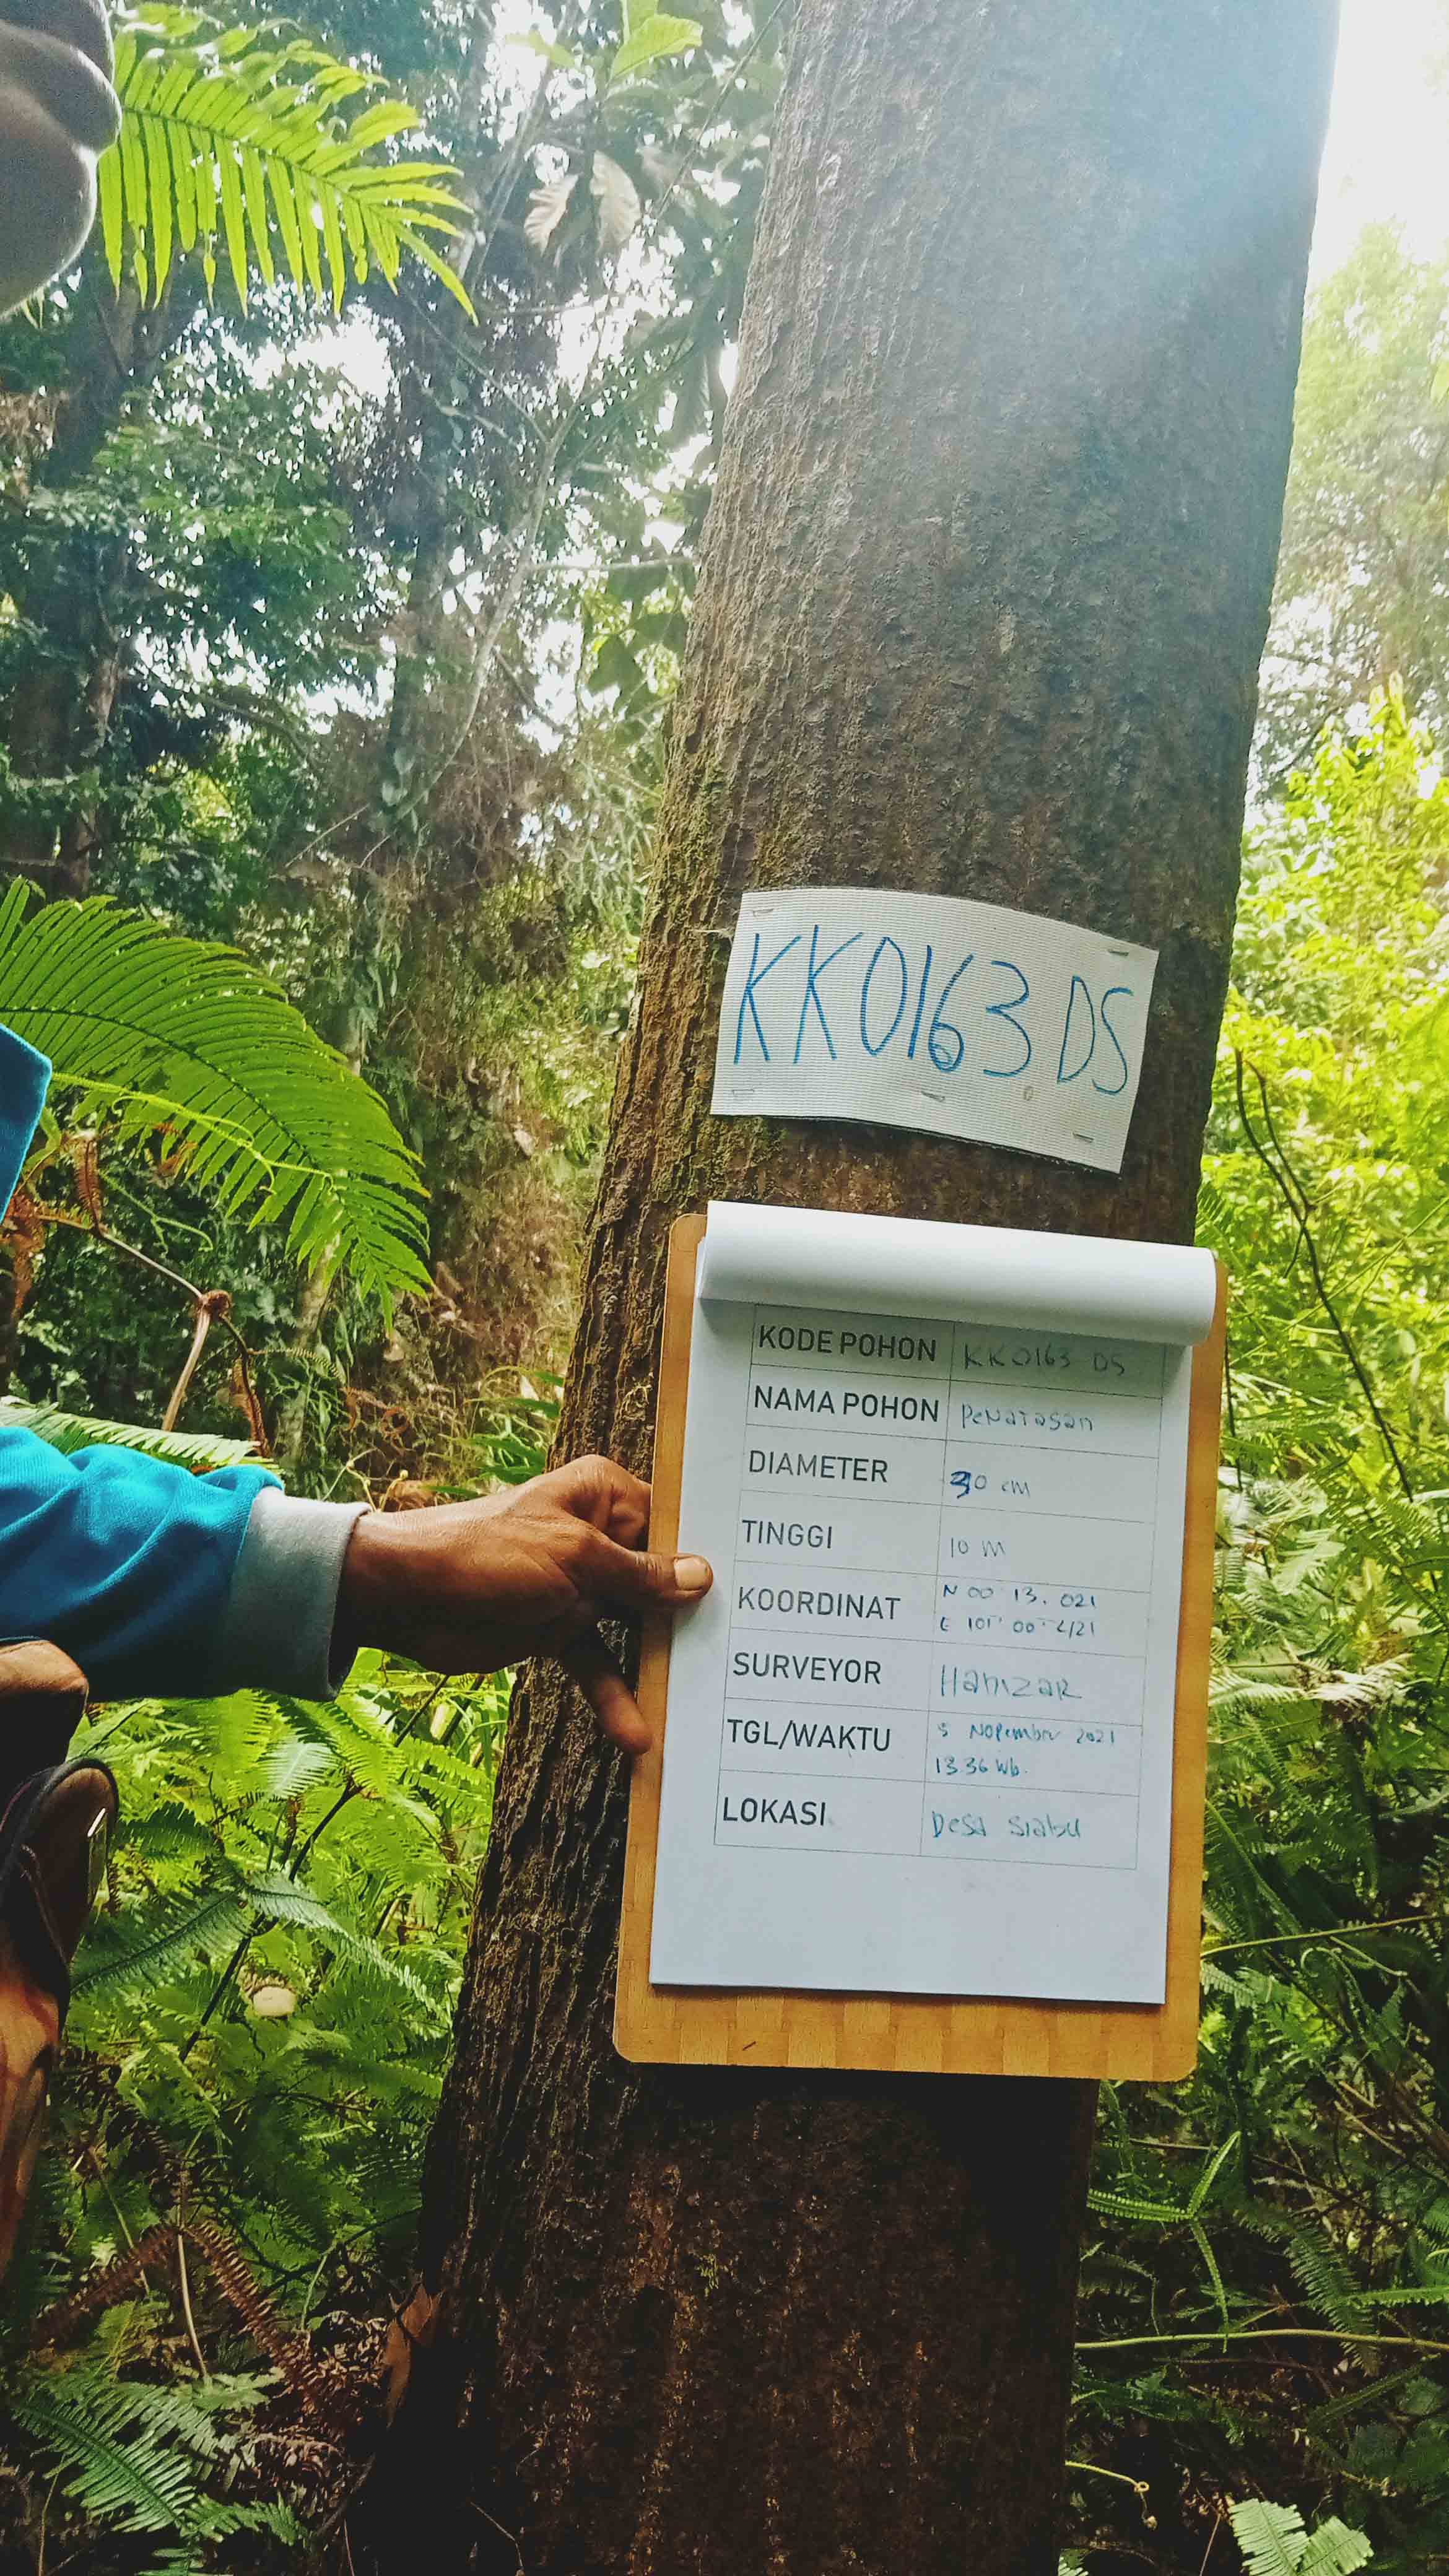 KK0163 DS
KODE POHON KK0163 DS
NAMA POHON Penatasan
DIAMETER 30 cm
TINGGI 10 M
KOORDINAT N 00 13. 021
E 101° 00
SURVEYOR Hamzar
TGL/WAKTU 5 Nopember 2021
13.36 Wib.
LOKASI Desa Siabu